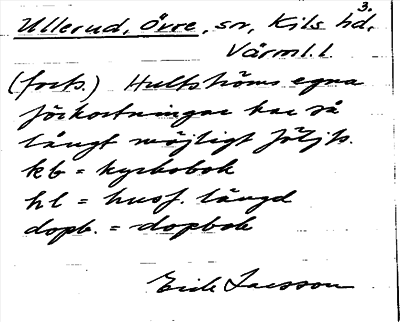 3.
Ullerud, Övre, sn, Kils hd,
Värml. l.
(forts.) Hultströms egna
förkortningar har så
långt möjligt följts.
kb = kyrkobok
hl = husf. längd
dopb. = dopbok
Erik Larsson